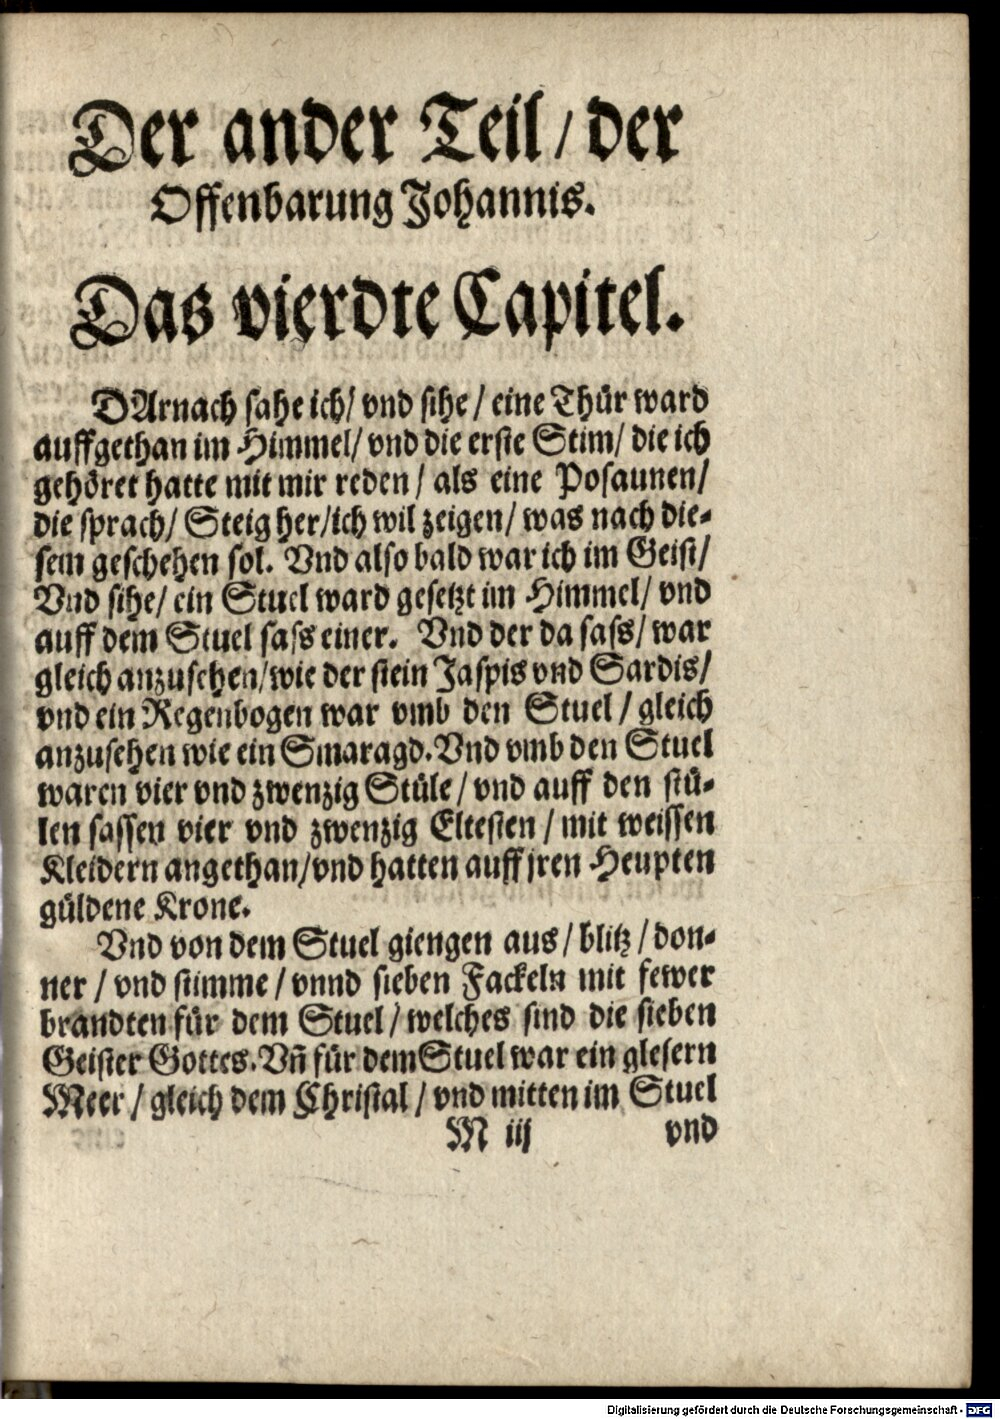 Der ander Teil / der
Offenbarung Johannis.
Das vierdte Capitel.
DArnach sahe ich / vnd sihe / eine Thür ward
auffgethan im Himmel / vnd die erste Stim / die ich
gehöret hatte mit mir reden / als eine Posaunen /
die sprach / Steig her / ich wil zeigen / was nach die-
sem geschehen sol. Vnd also bald war ich im Geist /
Vnd sihe / ein Stuel ward gesetzt im Himmel / vnd
auff dem Stuel sass einer. Vnd der da sass / war
gleich anzusehen / wie der stein Jaspis vnd Sardis /
vnd ein Regenbogen war vmb den Stuel / gleich
anzusehen wie ein Smaragd. Vnd vmb den Stuel
waren vier vnd zwenzig Stüle / vnd auff den stü-
len sassen vier vnd zwenzig Eltesten / mit weissen
Kleidern angethan / vnd hatten auff jren Heupten
güldene Krone.
Vnd von dem Stuel giengen aus / blitz / don-
ner / vnd stimme / vnnd sieben Fackeln mit fewer
brandten für dem Stuel / welches sind die sieben
Geister Gottes. Vñ für dem Stuel war ein glesern
Meer / gleich dem Christal / vnd mitten im Stuel
M iij vnd
Digitalisierung gefördert durch die Deutsche Forschungsgemeinschaft - DFG